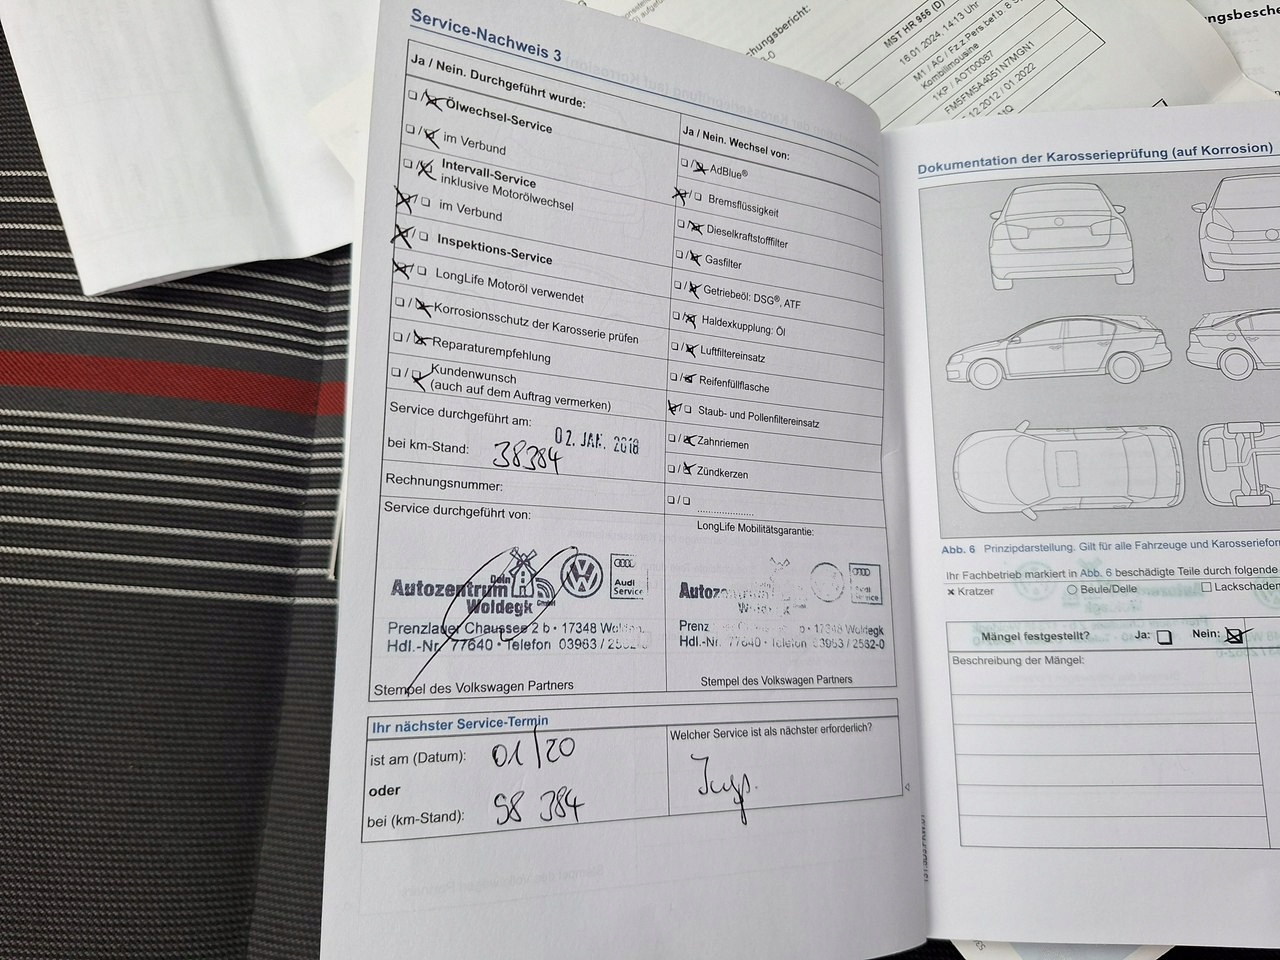 Service-Nachweis 3
Ja / Nein. Durchgeführt wurde:
Ölwechsel-Service
im Verbund
Intervall-Service
inklusive Motorölwechsel
im Verbund
Inspektions-Service
LongLife Motoröl verwendet
Korrosionsschutz der Karosserie prüfen
Reparaturempfehlung
Kundenwunsch
(auch auf dem Auftrag vermerken)
Service durchgeführt am:
02. JAN. 2018
bei km-Stand:
38384
Rechnungsnummer:
Service durchgeführt von:
Dein
Autozentrum
Woldegk
GmbH
Audi
Service
Prenzlauer Chaussee 2 b • 17348
Hdl.-Nr. 77640 • Telefon 03963 / 2582-0
Stempel des Volkswagen Partners
Ja / Nein. Wechsel von:
AdBlue®
Bremsflüssigkeit
Dieselkraftstofffilter
Gasfilter
Getriebeöl: DSG®, ATF
Haldexkupplung: Öl
Luftfiltereinsatz
Reifenfüllflasche
Staub- und Pollenfiltereinsatz
Zahnriemen
Zündkerzen
LongLife Mobilitätsgarantie:
Prenz b • 17348 Woldegk
Hdl.-Nr. 77640 • Telefon 03963 / 2582-0
Stempel des Volkswagen Partners
Ihr nächster Service-Termin
ist am (Datum):
01/20
oder
bei (km-Stand):
58 384
Welcher Service ist als nächster erforderlich?
Insp.
Dokumentation der Karosserieprüfung (auf Korrosion)
Abb. 6 Prinzipdarstellung. Gilt für alle Fahrzeuge und
Ihr Fachbetrieb markiert in Abb. 6 beschädigte Teile durch folgende
Kratzer
Beule/Delle
Mängel festgestellt?
Ja:
Nein:
Beschreibung der Mängel:
MST HR 956 (D)
16.01.2024, 14:13 Uhr
M1 / AC / Fz.z.Pers.bef.b. 8
Kombilimousine
1KP / AOT00087
FM5FM5A4051N7MGN1
12.2012 / 01.2022